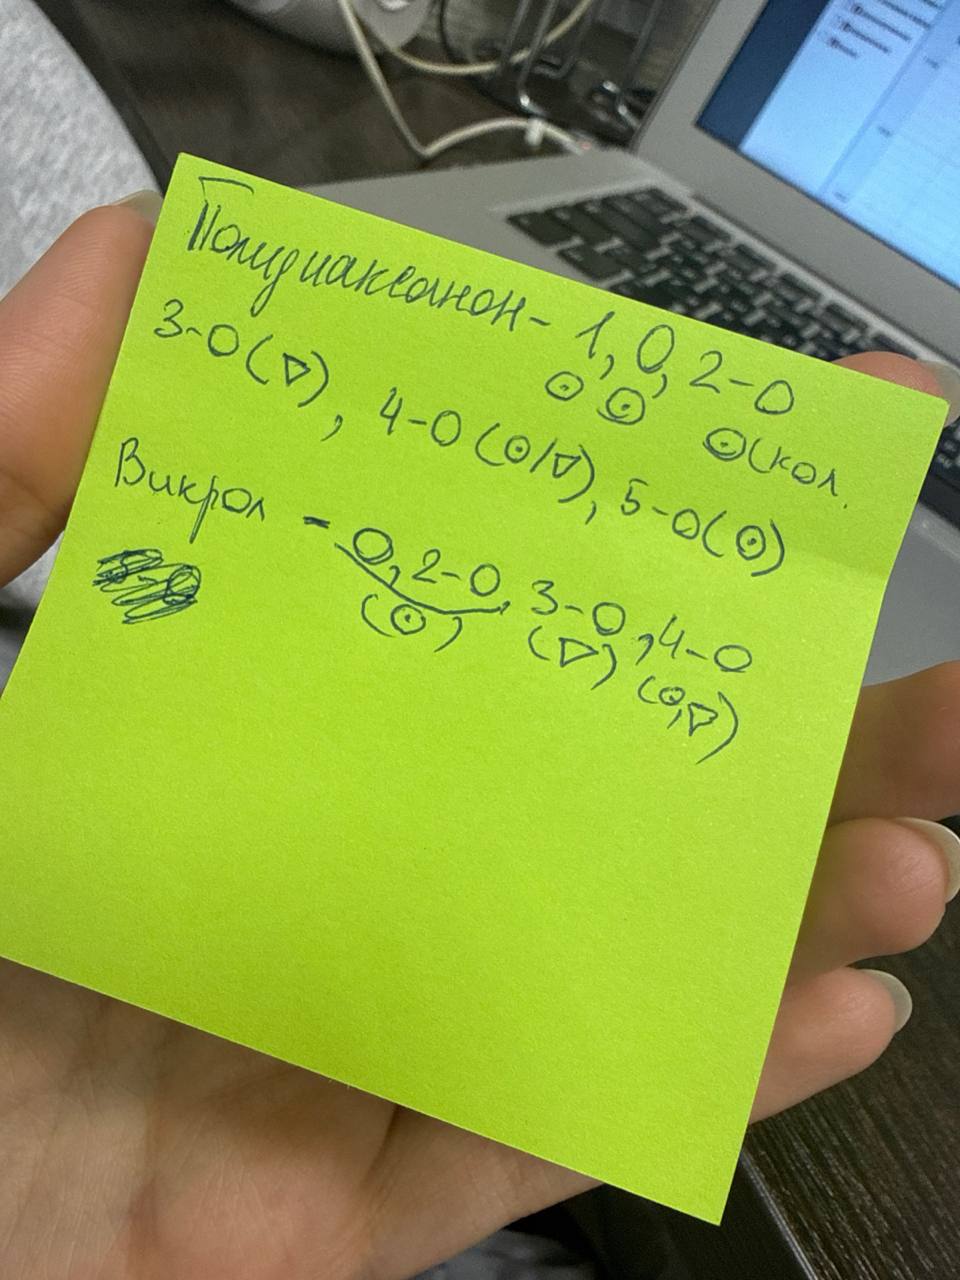 Полидиаксанон - 1, 0, 2-0
⊙ ⊙ ⊙(кол.
3-0(▽), 4-0(⊙/▽), 5-0(⊙)
Викрол - 0, 2-0, 3-0, 4-0
(⊙) (▽) (⊙,▽)